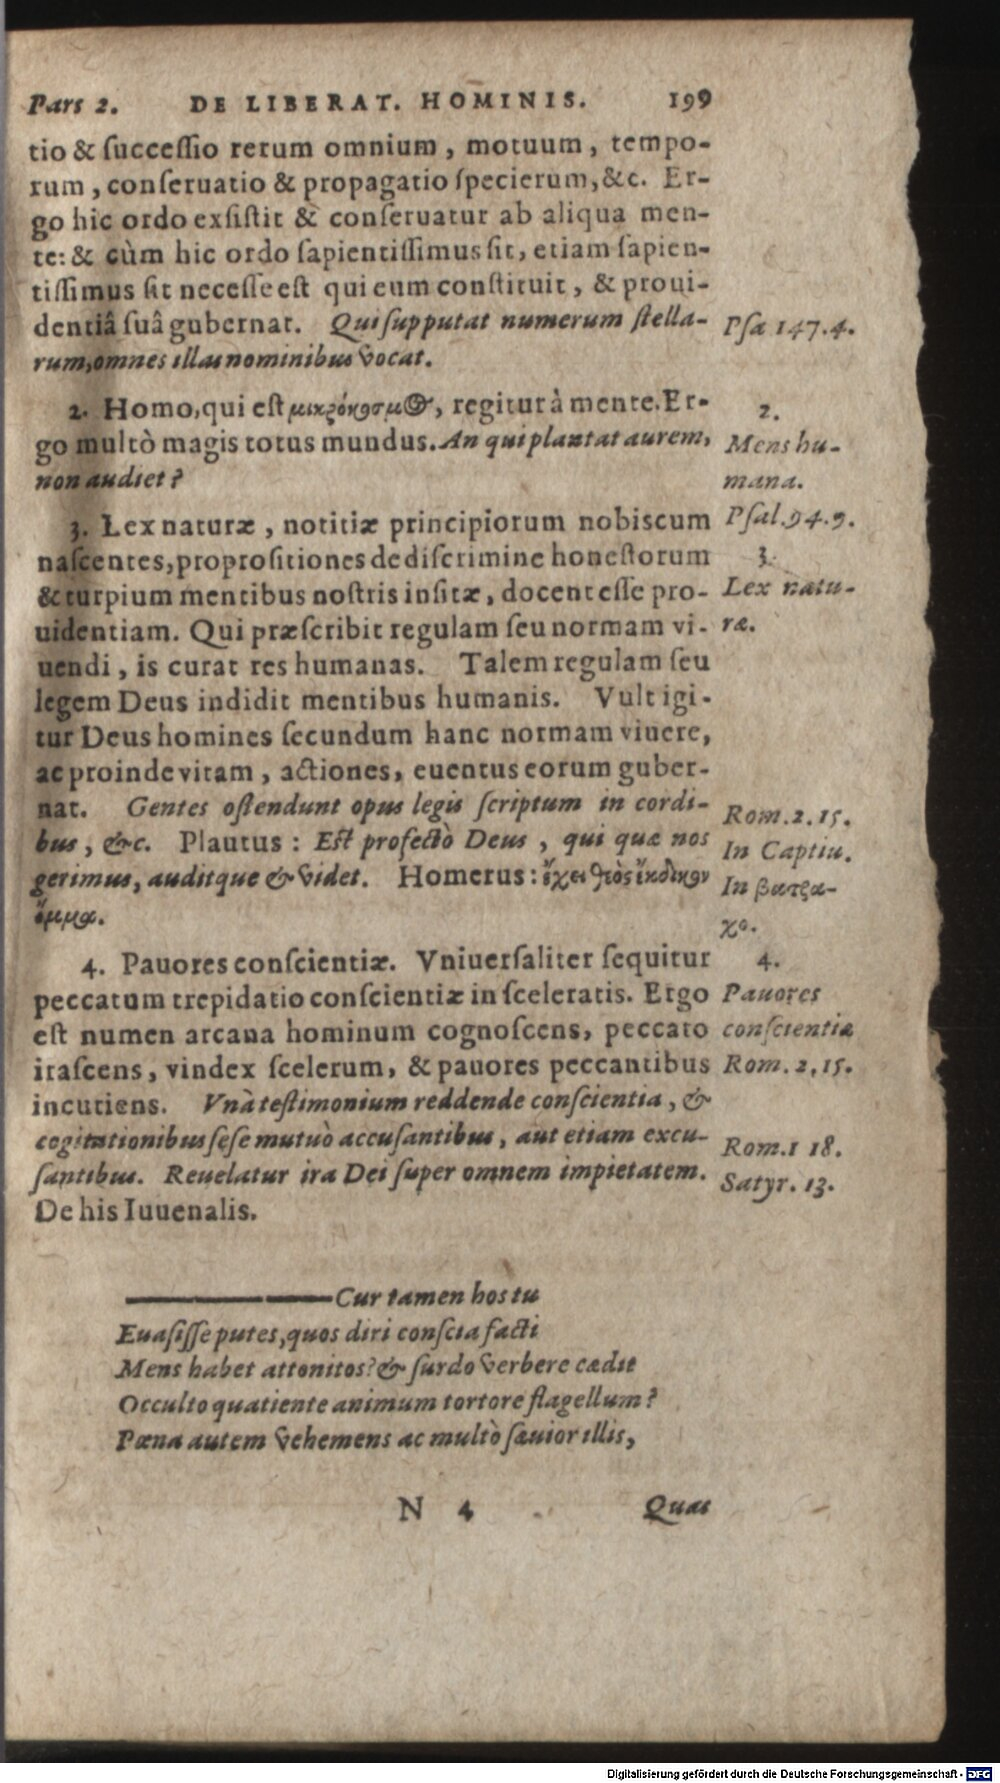 Pars 2. DE LIBERAT. HOMINIS. 199
tio & ſucceſſio rerum omnium, motuum, tempo-
rum, conſeruatio & propagatio ſpecierum, &c. Er-
go hic ordo exſiſtit & conſeruatur ab aliqua men-
te: & cùm hic ordo ſapientiſſimus ſit, etiam ſapien-
tiſſimus ſit neceſſe est qui eum conſtituit, & proui-
dentiâ ſuâ gubernat. Qui ſupputat numerum ſtella-
rum, omnes illas nominibus vocat.
Pſa 147.4.
2. Homo, qui eſt μικρόκοσμος, regitur à mente. Er-
go multò magis totus mundus. An qui plantat aurem,
non audiet?
2.
Mens hu-
mana.
Pſal. 94.9.
3. Lex naturæ, notitiæ principiorum nobiscum
naſcentes, proproſitiones de diſcrimine honeſtorum
& turpium mentibus noſtris inſitæ, docent eſſe pro-
uidentiam. Qui præſcribit regulam ſeu normam vi-
uendi, is curat res humanas. Talem regulam ſeu
legem Deus indidit mentibus humanis. Vult igi-
tur Deus homines ſecundum hanc normam viuere,
ac proinde vitam, actiones, euentus eorum guber-
nat. Gentes oſtendunt opus legis ſcriptum in cordi-
bus, &c. Plautus: Eſt profectò Deus, qui quæ nos
gerimus, auditque & videt. Homerus: ἔχει θεὸς ἔκδικον
ὄμμα.
3.
Lex natu-
ræ.
Rom. 2. 15.
In Captiu.
In βατραχο.
4. Pauores conſcientiæ. Vniuerſaliter ſequitur
peccatum trepidatio conſcientiæ in ſceleratis. Ergo
eſt numen arcana hominum cognoſcens, peccato
iraſcens, vindex ſcelerum, & pauores peccantibus
incutiens. Vnà teſtimonium reddende conſcientia, &
cogitationibus ſeſe mutuò accuſantibus, aut etiam excu-
ſantibus. Reuelatur ira Dei ſuper omnem impietatem.
De his Iuuenalis.
4.
Pauores
conſcientiæ
Rom. 2. 15.
Rom. 1 18.
Satyr. 13.
Cur tamen hos tu
Euaſiſſe putes, quos diri conſcia facti
Mens habet attonitos? & ſurdo verbere cædit
Occulto quatiente animum tortore flagellum?
Pœna autem vehemens ac multò ſæuior illis,
N 4 Quas
Digitalisierung gefördert durch die Deutsche Forschungsgemeinschaft - DFG